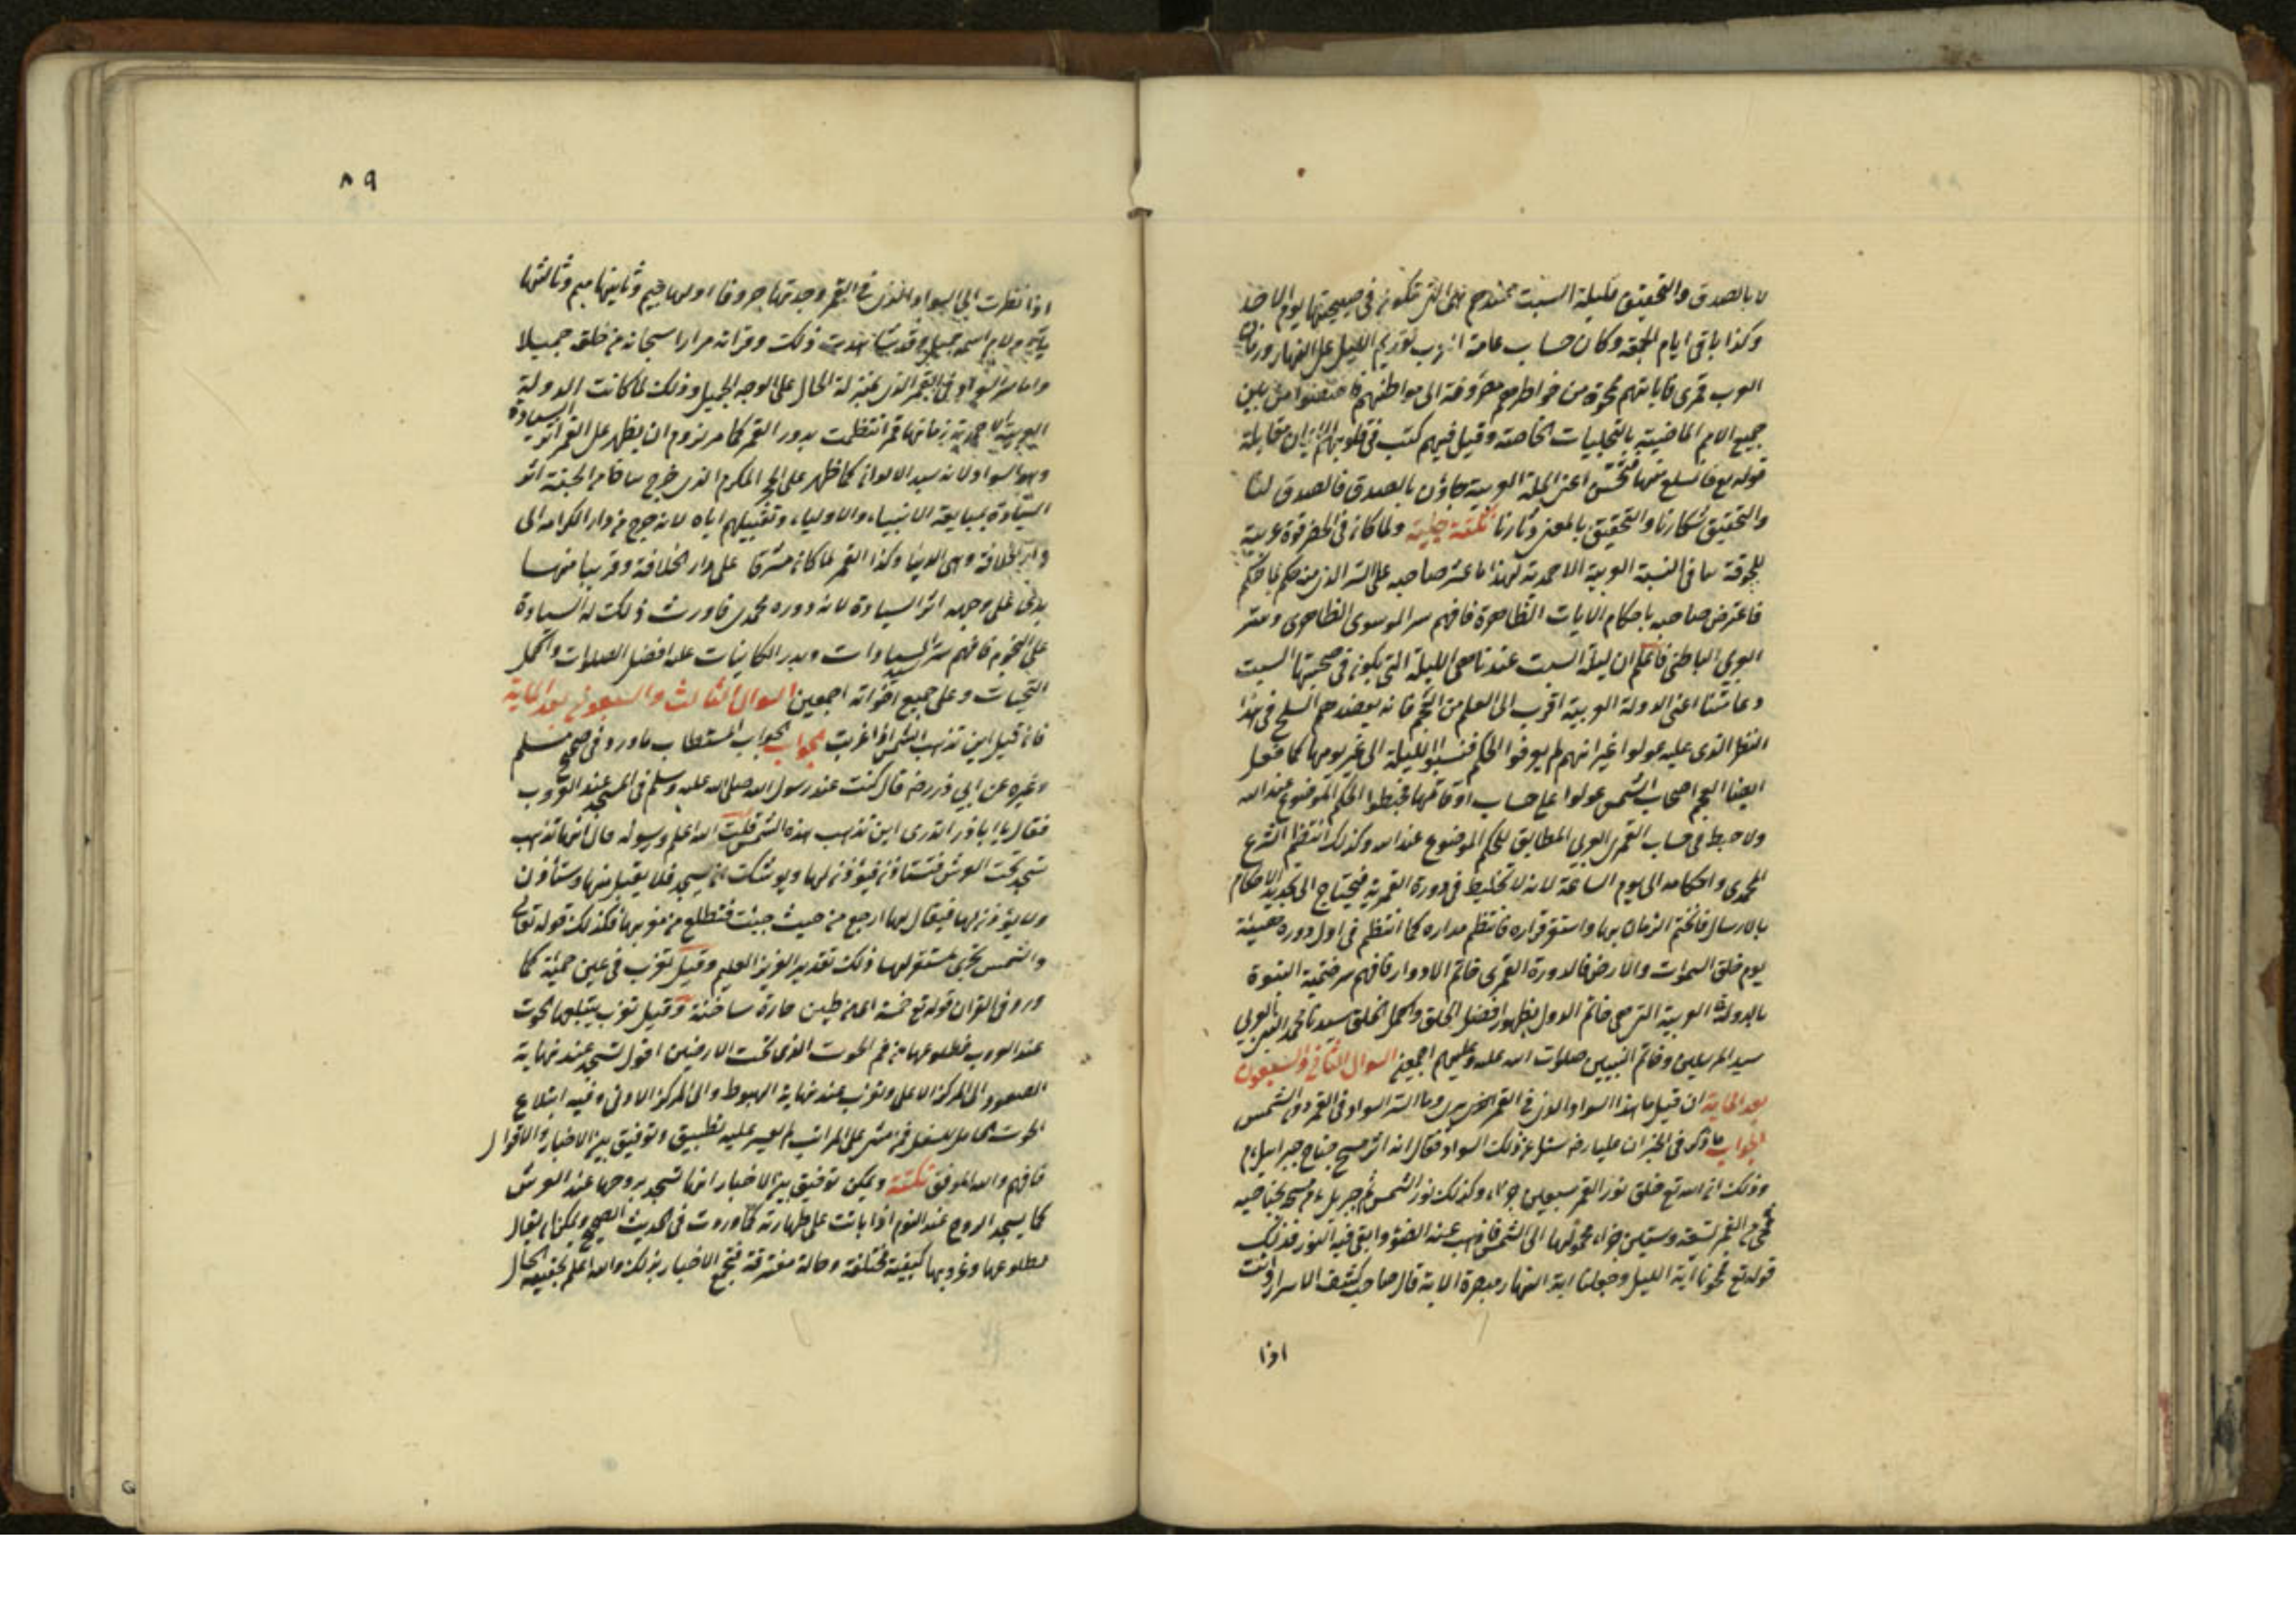 لا بالصدق والتحقيق فليلة السبت عندهم هى التى تكون فى صبيحتها يوم الاحد
وكذا باقى ايام الجمعة وكان حساب عامة العرب تقديم الليل على النهار وزمان
العرب قمرى فاياتهم ممحوة من ظواهرهم مصروفة الى بواطنهم فاختصوا من بين
جميع الامم الماضية بالتجليات الخاصة وقيل فيهم كتب فى قلوبهم الايمان مقابلة
قوله تع فانسلخ منها اعنى الملة العربية بالصدق فالصدق لنا
والتحقيق بالمعنى نكتة جلية ولما كان فى الخضر قوة عربية
للحوقه بنا فى النسبة العربية الاحمدية لهذا ما عثر صاحبه على السر الذى منه حكم بما حكم
فاعترض صاحبه باحكام الايات الظاهرة فافهم سر الموسوى الظاهرى وسر
العربى الباطنى فاعلم ان ليلة السبت عندنا هى الليلة التى يكون فى صبيحتها السبت
اعنى الدولة العربية اقرب الى العلم من العجم فانه يعضدهم السلخ فى هذا
النظر الذى عليه عولوا غير انهم لم يعرفوا الحكم فنسبوا الليلة الى غير يومها كما فعل
ايضا العجم اصحاب الشمس عولوا على حساب اوقاتها فخبطوا الحكم الموضوع عند الله
ولا خبط فى حساب القمرى العربى المطابق للحكم الموضوع عند الله وكذلك انتظم الشرع
المحمدى واحكامه الى يوم الساعة لانه لا تخليط فى دورة القمرية فيحتاج الى تجديد الاحكام
بالارسال فانختم الزمان بها واستقر قراره فانتظم مداره كما انتظم فى اول دوره هيئة
يوم خلق السموات والارض فالدورة القمرى خاتم الادوار فافهم سر ختمية النبوة
بالدولة العربية التى هى خاتم الدول بظهور افضل الخلق واكمل الخلق سيدنا محمد النبى العربى
سيد المرسلين وخاتم النبيين صلوات الله عليه وعليهم اجمعين السوال الثانى والسبعون
بعد الماية ان قيل ما هذا السواد الذى فى القمر وما السر السواد فى القمر دون الشمس
الجواب ما ذكر فى الخبر ان عليا رضه سئل عن ذلك السواد فقال انه اثر مسح جناح جبرائيل ءم
وذلك ان الله تع خلق نور القمر سبعين جزءا وكذلك نور الشمس ثم جبريل ءم مسحه بجناحيه
فمحى من القمر تسعة وستين جزءا فحولها الى الشمس فاذهب عنه الضوء وابقى فيه النور فذلك
قوله تع فمحونا اية الليل وجعلنا اية النهار مبصرة الاية قال صاحب كشف الاسرار وانت
اذا
٨٩
اذا نظرت الى السواد الذى فى القمر وجدتها حروفا اولها جيم وثانيها ميم وثالثها
ياء ولام اسمه جميل وقد شاهدت ذلك وقراته مرارا سبحانه من خلق جميلا
واما سر السواد فى القمر الذى بمنزلة الخال على الوجه الجميل وذلك لما كانت الدولة
العربية الاحمدية زمانها قمر انتظمت بدور القمر كما مر لزوم ان يظهر على القمر اثر السيادة
وهو السواد لانه سيد الالوان كما ظهر على الحجر المكرم الذى خرج بياضا من الجنة اثر
السيادة بمبايعة الانبياء والاولياء وتقبيلهم اياه لانه خرج من دار الكرامة الى
دار الخلافة وهى الدنيا وكذا القمر لما كان مشرقا على دار الخلافة وقريبا منها
بدى على وجهه اثر السيادة لانه دوره محمدى فاورث ذلك له السيادة
على النجوم فافهم سر السيادات وبدر الكاينات عليه افضل الصلوات واكمل
التحيات وعلى جميع اخوانه اجمعين السوال الثالث والسبعون بعد الماية
فان قيل اين تذهب الشمس اذا غربت الجواب الجواب المستطاب ما ورد فى صحيح مسلم
وغيره عن ابى ذر رضه قال كنت عند رسول الله صلى الله عليه وسلم فى المسجد عند الغروب
فقال يا اباذر اتدرى اين تذهب هذه الشمس قلت الله اعلم ورسوله قال انها تذهب
تسجد تحت العرش فتستاذن فيؤذن لها ويوشك ان تسجد فلا يقبل منها وتستأذن
ولا يؤذن لها فيقال لها ارجع من حيث جئت فتطلع من مغربها فكذلك قوله تعالى
والشمس تجرى لمستقر لها ذلك تقدير العزيز العليم وقيل تغرب فى عين حمئة كما
ورد فى القران قوله تع حمئة اى من طين حارة ساخنة وقيل تغرب يبتلعها الحوت
عند الغروب فطلوعها من فم الحوت الذى تحت الارضين اقول تسجد عند نهاية
الصعود الى المركز الاعلى وتغرب عند نهاية الهبوط والى المركز الادنى وفيه ابتلاع
الحوت الحامل للسفل فمن على المراتب لم يعسر عليه تطبيق وتوفيق بين الاخبار والاقوال
فافهم والله الموفق نكتة ويمكن توفيق بين الاخبار انها تسجد بروحها عند العرش
كما يسجد الروح عند النوم اذا باتت على طهارته كما وردت فى الحديث الصحيح ويمكن ان يقال
مطلوعها وغروبها كيفية مختلفة وحالة متفرقة فتجمع الاخبار بذلك والله اعلم بحقيقة الحال